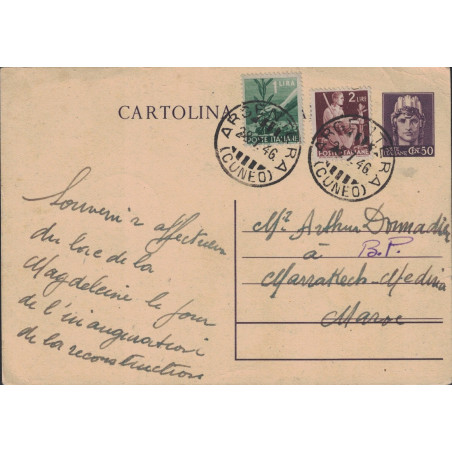 CARTOLINA
1 LIRA
POSTE ITALIANE
2 LIRE
POSTE ITALIANE
CEN. 50
ARGENTERA
(CUNEO)
ARGENTERA
(CUNEO)
Souvenir affectueux
du lac de la
Magdeleine le jour
de l'inauguration
de la reconstruction
Mr Arthur Donnadieu
à B.P.
Marrakech-Medina
Maroc